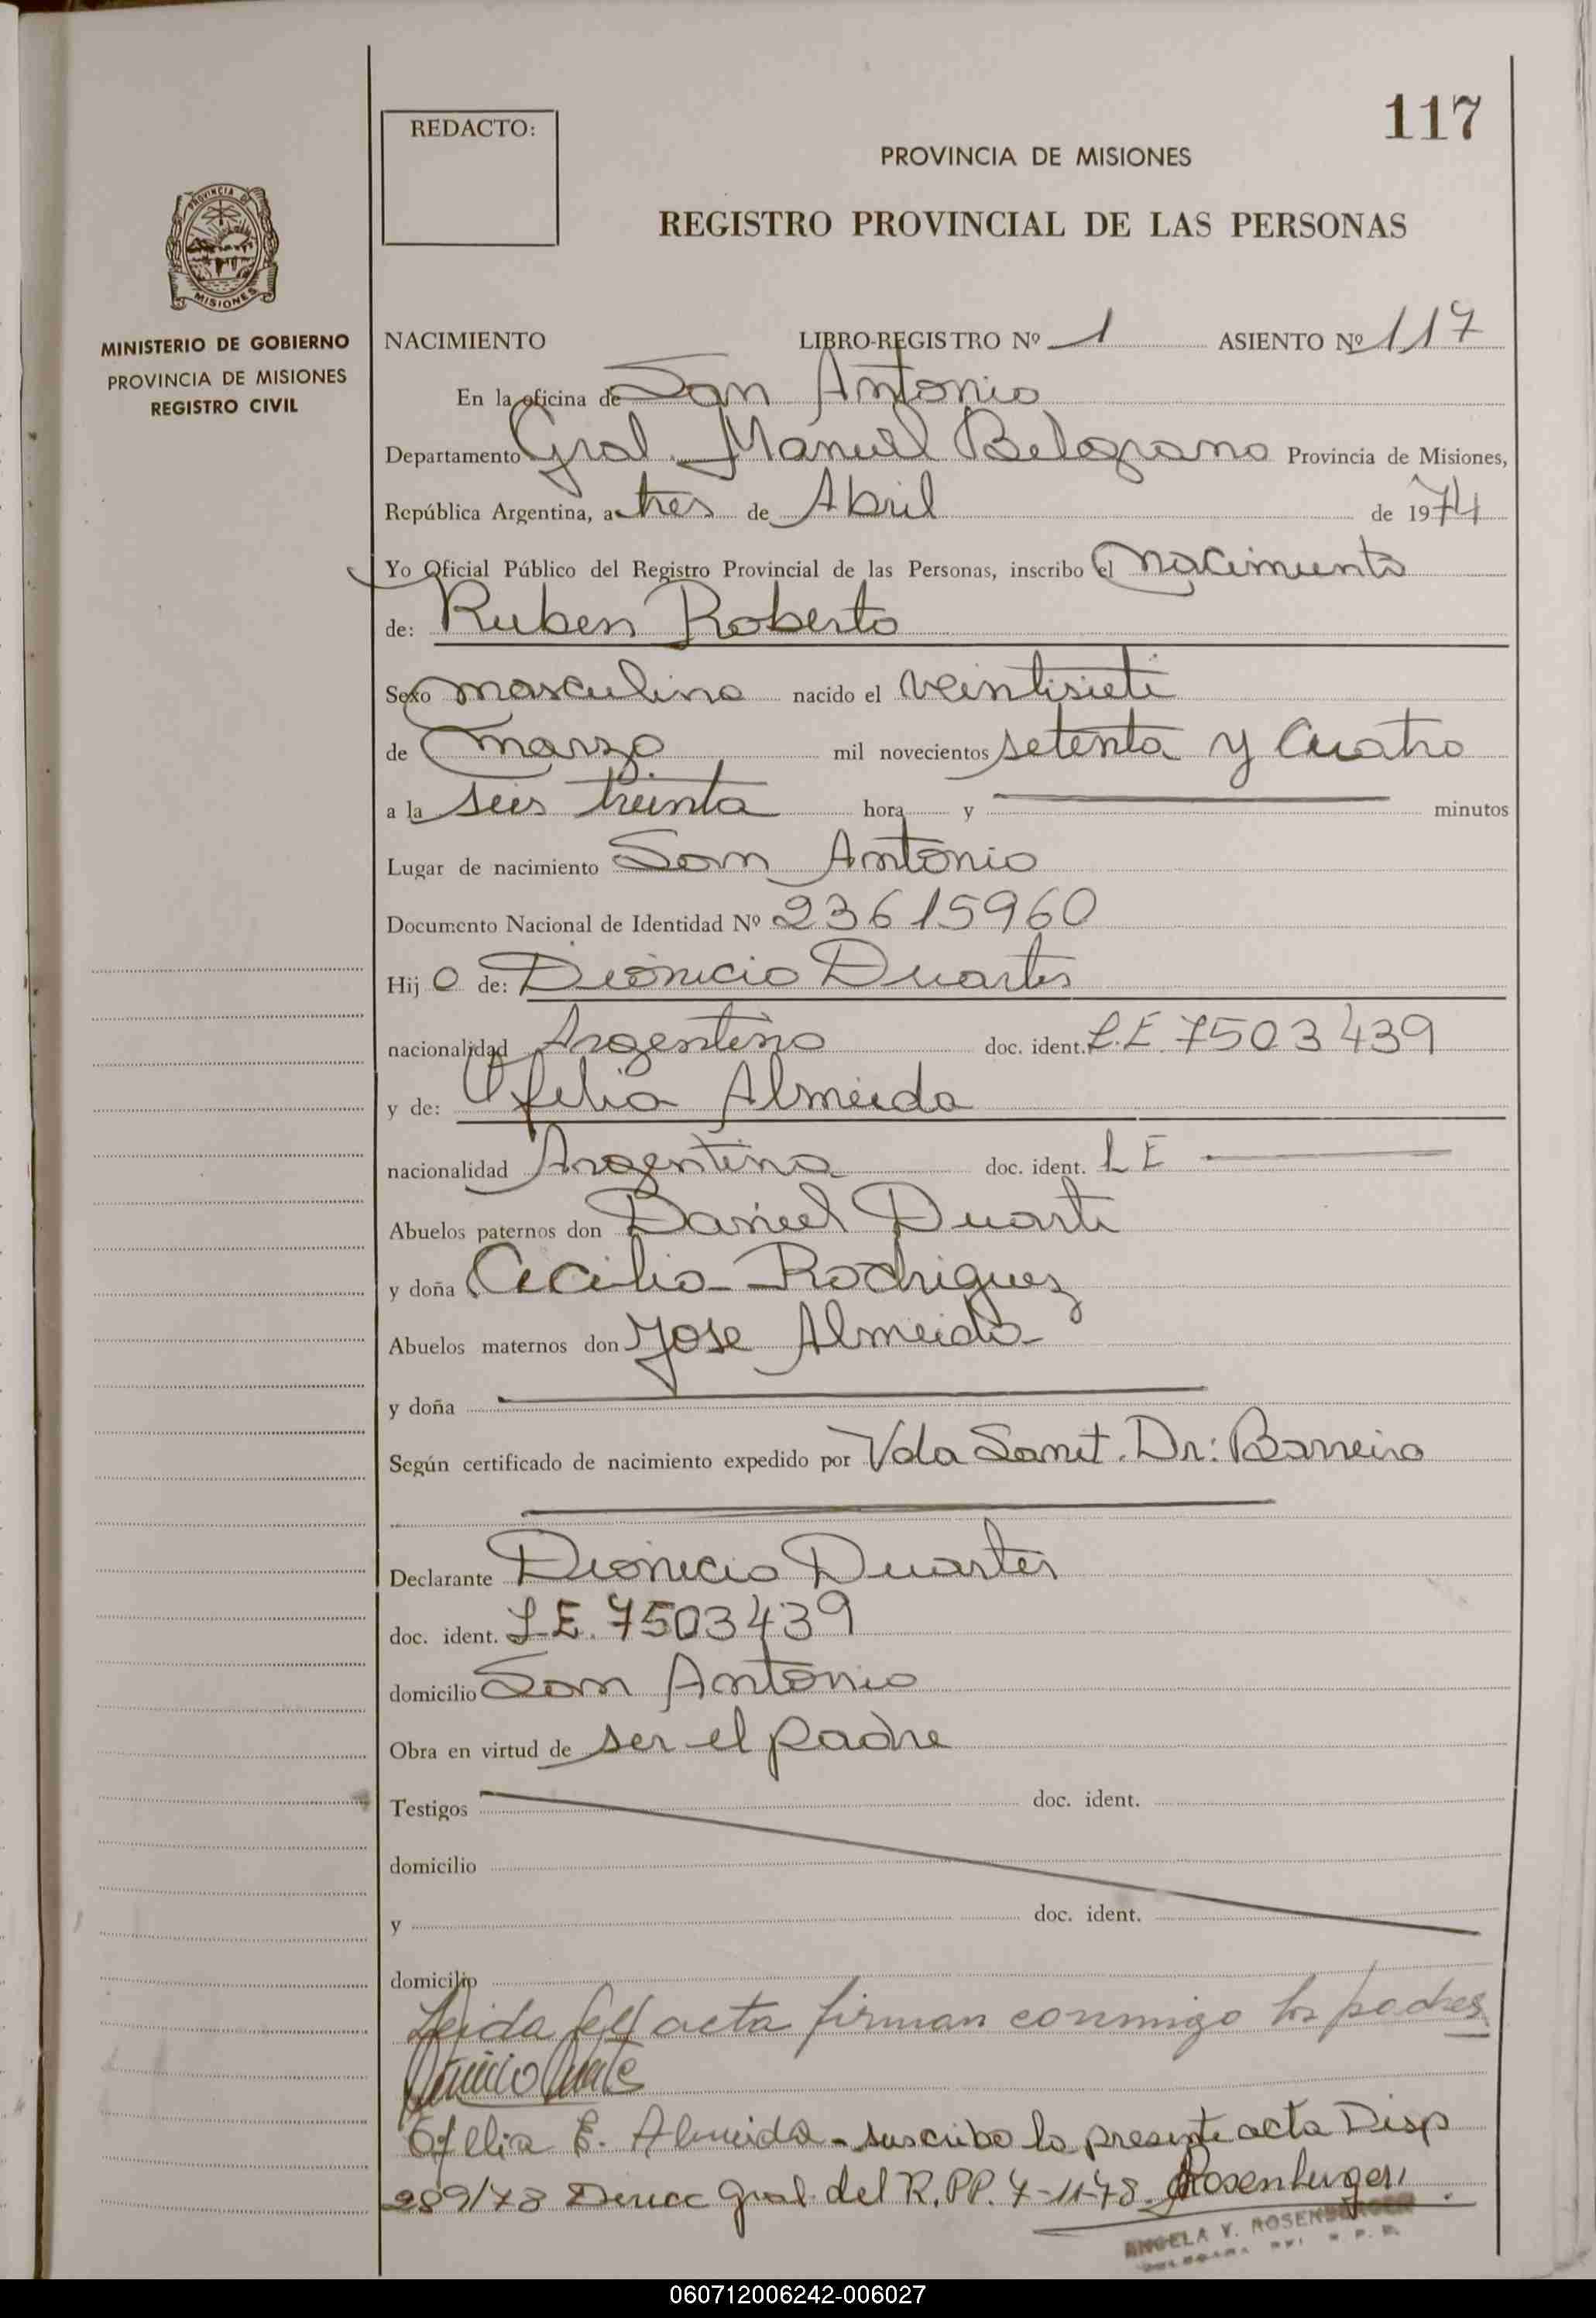 117
REDACTO:
PROVINCIA DE MISIONES
REGISTRO PROVINCIAL DE LAS PERSONAS
PROVINCIA DE
MISIONES
MINISTERIO DE GOBIERNO
PROVINCIA DE MISIONES
REGISTRO CIVIL
NACIMIENTO LIBRO-REGISTRO Nº 1 ASIENTO Nº 117
En la oficina de San Antonio
Departamento Gral. Manuel Belgrano Provincia de Misiones,
República Argentina, a tres de Abril de 1974
Yo Oficial Público del Registro Provincial de las Personas, inscribo el nacimiento
de: Ruben Roberto
Sexo masculino nacido el veintisiete
de marzo mil novecientos setenta y cuatro
a la seis treinta hora y minutos
Lugar de nacimiento San Antonio
Documento Nacional de Identidad Nº 23615960
Hijo de: Dionicio Duartes
nacionalidad Argentino doc. ident. L.E. 7503439
y de: Ofelia Almeida
nacionalidad Argentina doc. ident. L E
Abuelos paternos don Daniel Duarte
y doña Cecilia Rodriguez
Abuelos maternos don Jose Almeida
y doña
Según certificado de nacimiento expedido por Vda Sanit. Dr: Barreiro
Declarante Dionicio Duartes
doc. ident. L.E. 7503439
domicilio San Antonio
Obra en virtud de ser el padre
Testigos doc. ident.
domicilio
y doc. ident.
domicilio
Leida el acta firman conmigo los padres
Ofelia E. Almeida - suscribo la presente acta Disp
289/78 Direcc Gral del R.PP. 7-11-78. Rosenberger
ANGELA Y. ROSENBERGER
060712006242-006027